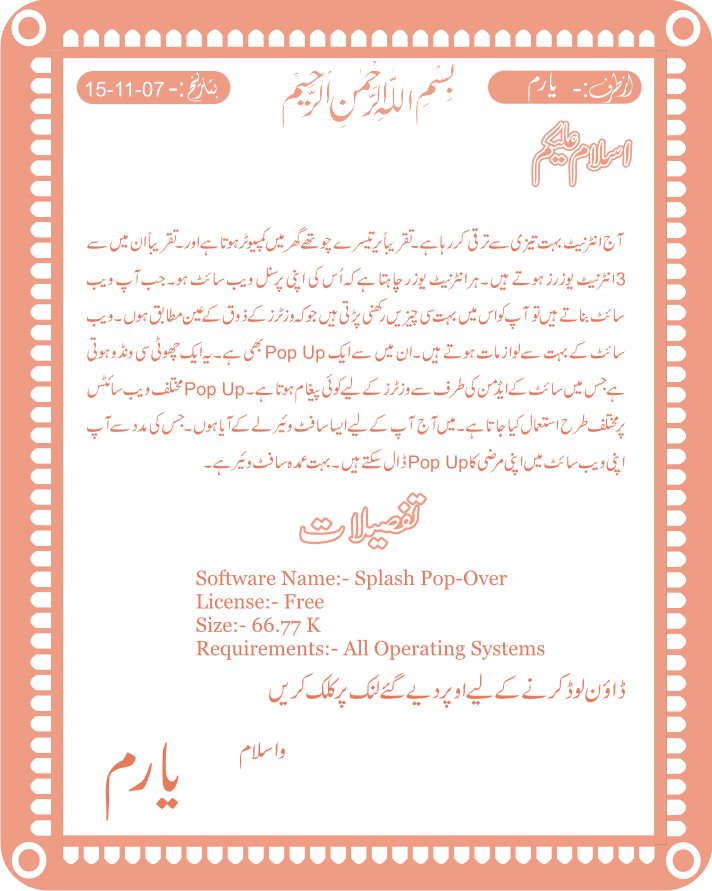 بسم اللہ الرحمٰن الرحیم
از طرف:- یارم
بتاریخ:- 15-11-07
اسلام علیکم
آج انٹرنیٹ بہت تیزی سے ترقی کر رہا ہے۔ تقریباً ہر تیسرے چوتھے گھر میں کمپیوٹر ہوتا ہے اور۔ تقریباً ان میں سے
3 انٹرنیٹ یوزرز ہوتے ہیں۔ ہر انٹرنیٹ یوزر چاہتا ہے کہ اُس کی اپنی پرسنل ویب سائٹ ہو۔ جب آپ ویب
سائٹ بناتے ہیں تو آپ کو اس میں بہت سی چیزیں رکھنی پڑتی ہیں جو کہ وزٹرز کے ذوق کے عین مطابق ہوں۔ ویب
سائٹ کے بہت سے لوازمات ہوتے ہیں۔ ان میں سے ایک Pop Up بھی ہے۔ یہ ایک چھوٹی سی ونڈو ہوتی
ہے جس میں سائٹ کے ایڈمن کی طرف سے وزٹرز کے لیے کوئی پیغام ہوتا ہے۔ Pop Up مختلف ویب سائٹس
پر مختلف طرح استعمال کیا جاتا ہے۔ میں آج آپ کے لیے ایسا سافٹ وئیر لے کے آیا ہوں۔ جس کی مدد سے آپ
اپنی ویب سائٹ میں اپنی مرضی کا Pop Up ڈال سکتے ہیں۔ بہت عمدہ سافٹ وئیر ہے۔
تفصیلات
Software Name:- Splash Pop-Over
License:- Free
Size:- 66.77 K
Requirements:- All Operating Systems
ڈاؤن لوڈ کرنے کے لیے اوپر دیے گئے لنک پر کلک کریں
واسلام
یارم